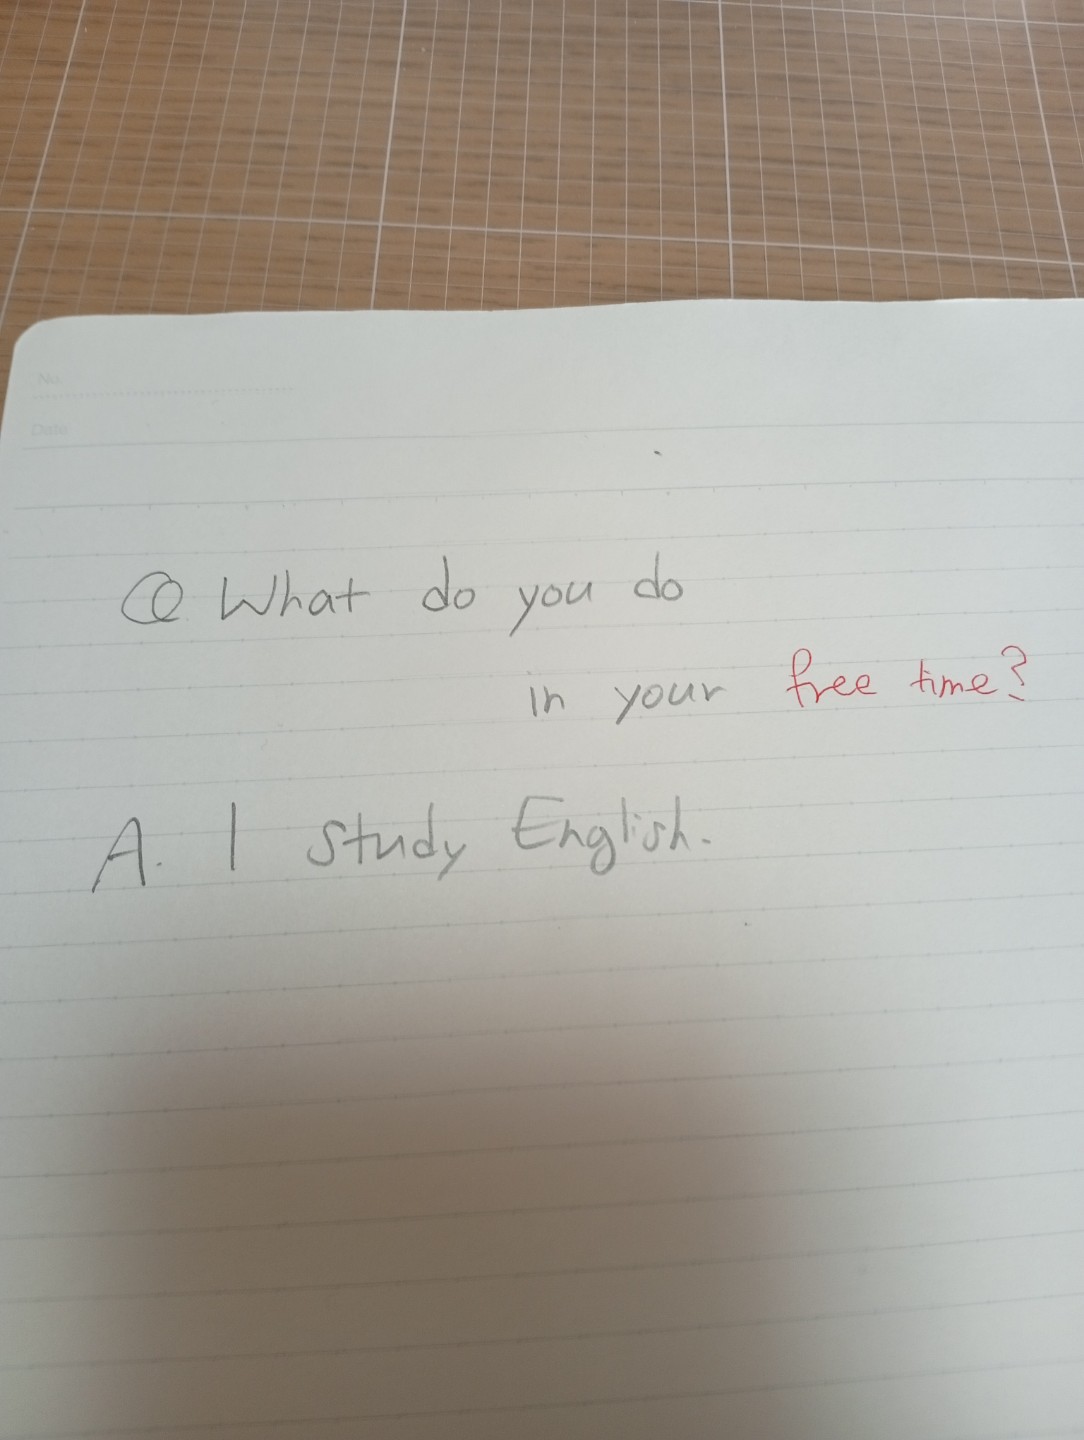 No.
Date
Q What do you do
in your free time?
A. I study English.